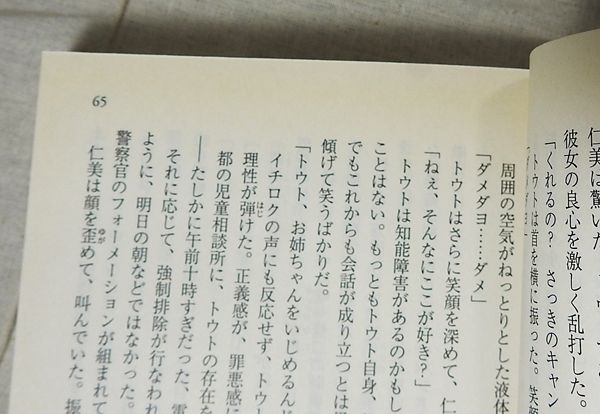 65
周囲の空気がねっとりとした液体
「ダメダヨ……ダメ」
トウトはさらに笑顔を深めて、仁
「ねぇ、そんなにここが好き？」
トウトは知能障害があるのかもし
ことはない。もっともトウト自身、
でもこれからも会話が成り立つとは
傾げて笑うばかりだ。
「トウト、お姉ちゃんをいじめるんじ
イチロクの声にも反応せず、トウト
理性が弾けた。正義感が、罪悪感に
都の児童相談所に、トウトの存在を
――たしかに午前十時すぎだった、電
それに応じて、強制排除が行なわれ
ように、明日の朝などではなかった。
警察官のフォーメーションが組まれて
仁美は顔を歪めて、叫んでいた。振
仁美は驚いた
彼女の良心を激しく乱打した。
「くれるの？　さっきのキャン
トウトは首を横に振った。笑
「ダメダヨ」